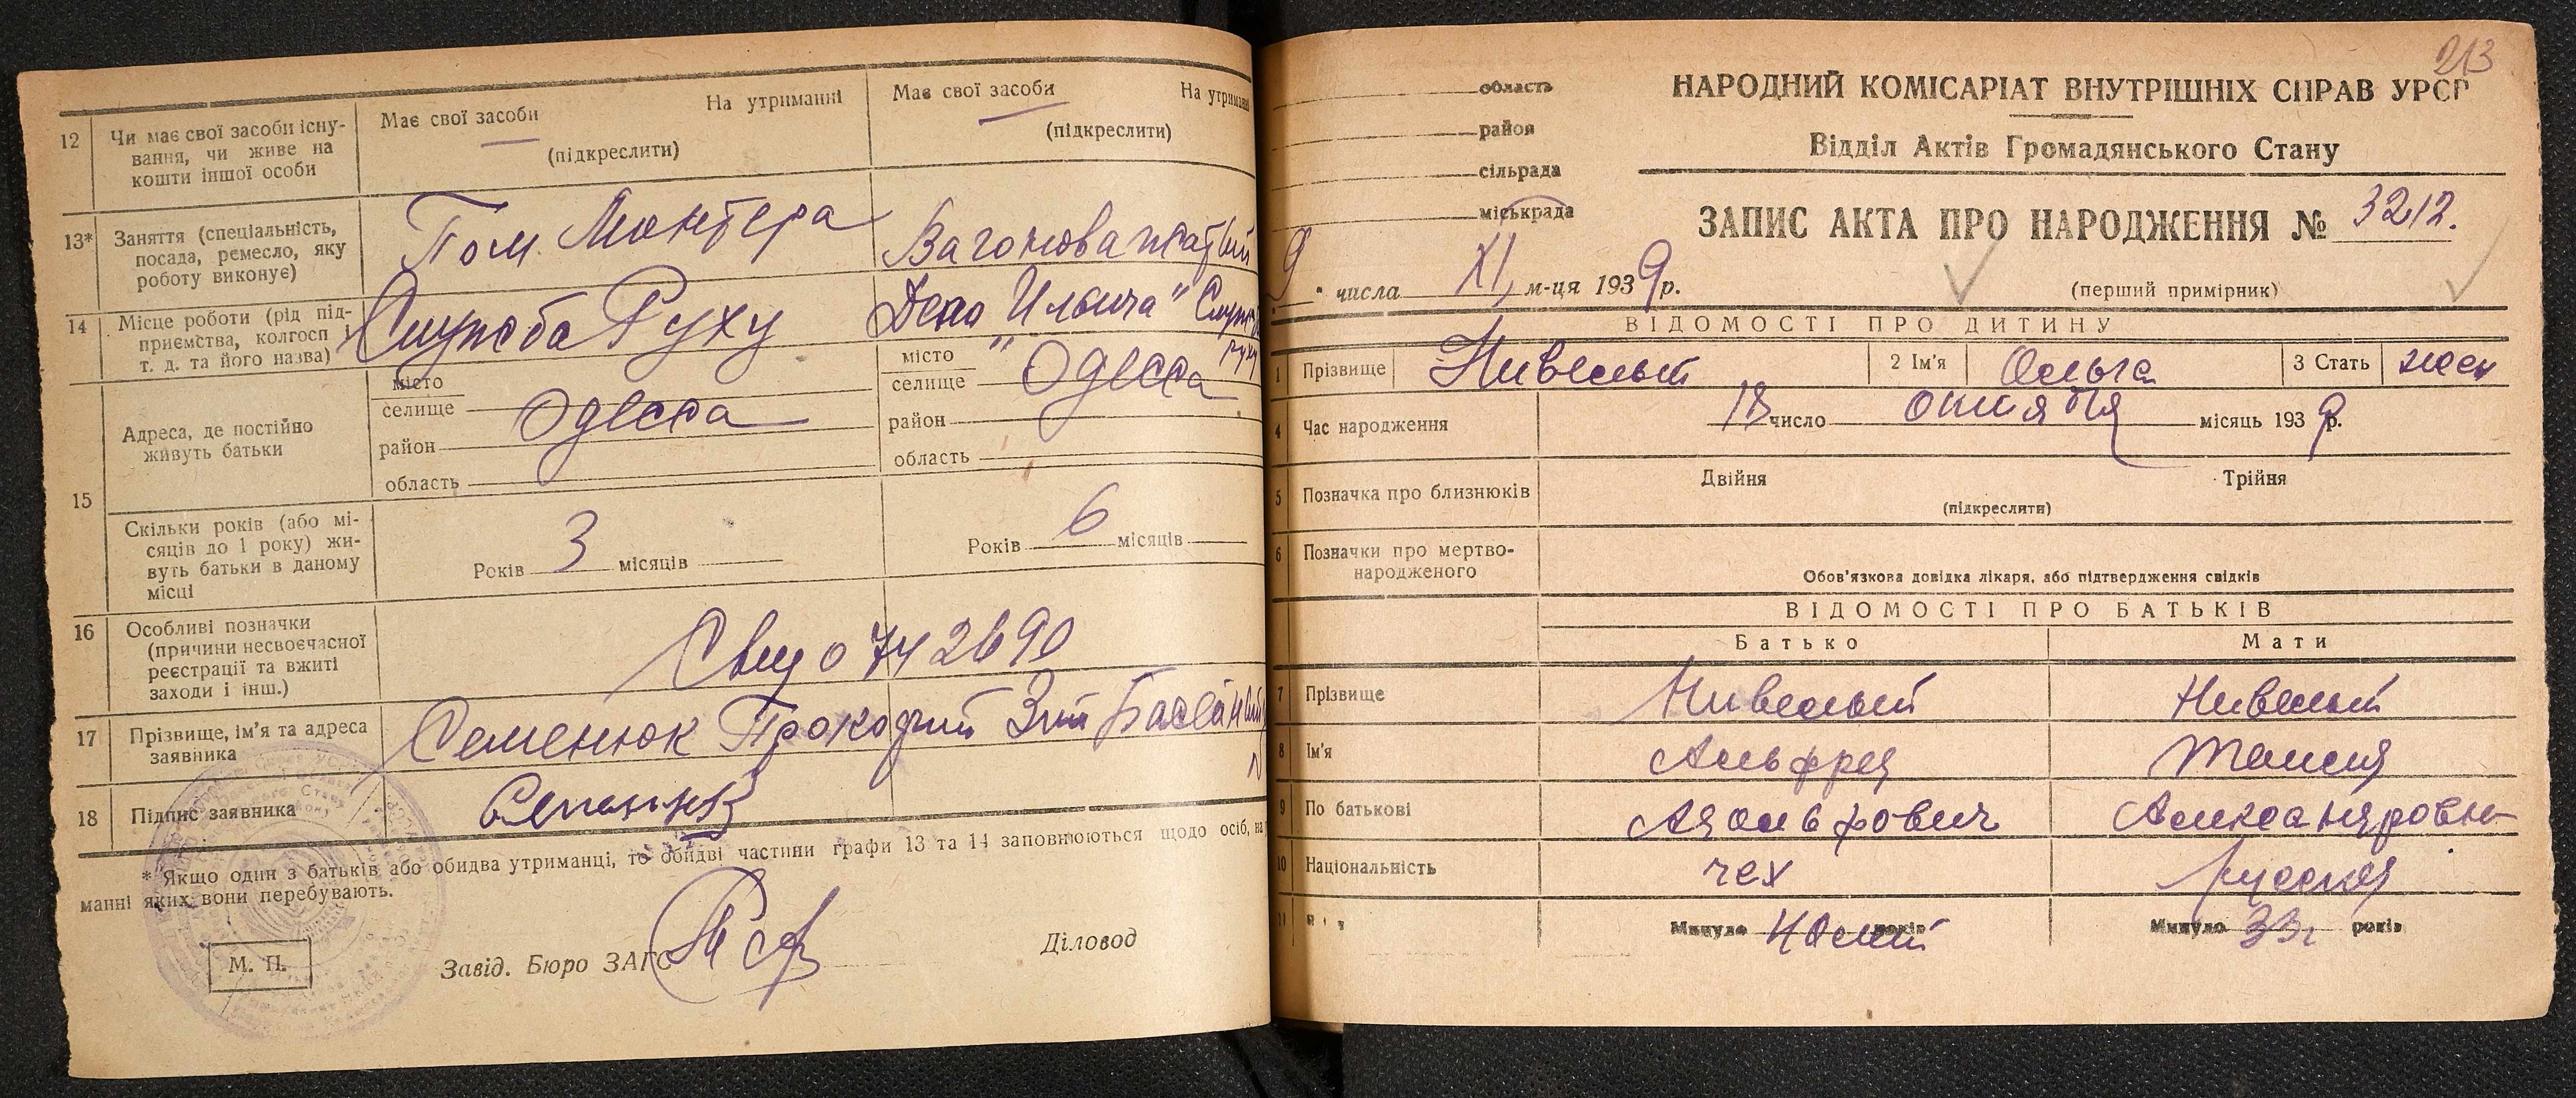 12 Чи має свої засоби існування, чи живе на кошти іншої особи
Має свої засоби На утриманні
(підкреслити)
Має свої засоби На утриманні
(підкреслити)
13* Заняття (спеціальність, посада, ремесло, яку роботу виконує)
Пом. Монтера
Вагоноважатый
14 Місце роботи (рід підприємства, колгосп і т. д. та його назва)
Служба Руху
Депо Ильича" Служба руху
15 Адреса, де постійно живуть батьки
місто
селище
район
область
Одесса
місто
селище
район
область
Одесса
Скільки років (або місяців до 1 року) живуть батьки в даному місці
Років 3 місяців
Років 6 місяців
16 Особливі позначки (причини несвоєчасної реєстрації та вжиті заходи і інш.)
742690
17 Прізвище, ім'я та адреса заявника
Семенюк Прокофий
18 Підпис заявника
* Якщо один з батьків або обидва утриманці, то обидві частини графи 13 та 14 заповнюються щодо осіб, на
манні яких вони перебувають.
М. П.
Завід. Бюро ЗАГС
Діловод
213
область
район
сільрада
міськрада
НАРОДНИЙ КОМІСАРІАТ ВНУТРІШНІХ СПРАВ УРСР
Відділ Актів Громадянського Стану
ЗАПИС АКТА ПРО НАРОДЖЕННЯ № 3212.
9 " числа XI м-ця 1939 р.
(перший примірник)
ВІДОМОСТІ ПРО ДИТИНУ
1 Прізвище Нивелыт 2 Ім'я Ольга 3 Стать жен
4 Час народження 18 число октября місяць 1939 р.
5 Позначка про близнюків Двійня Трійня
(підкреслити)
6 Позначки про мертвонародженого
Обов'язкова довідка лікаря, або підтвердження свідків
ВІДОМОСТІ ПРО БАТЬКІВ
Батько Мати
7 Прізвище Нивелыт Нивелыт
8 Ім'я Альфред Таисия
9 По батькові Адольфович Александровн
10 Національність чех русская
11 Минуло 40 років Минуло 33 г років